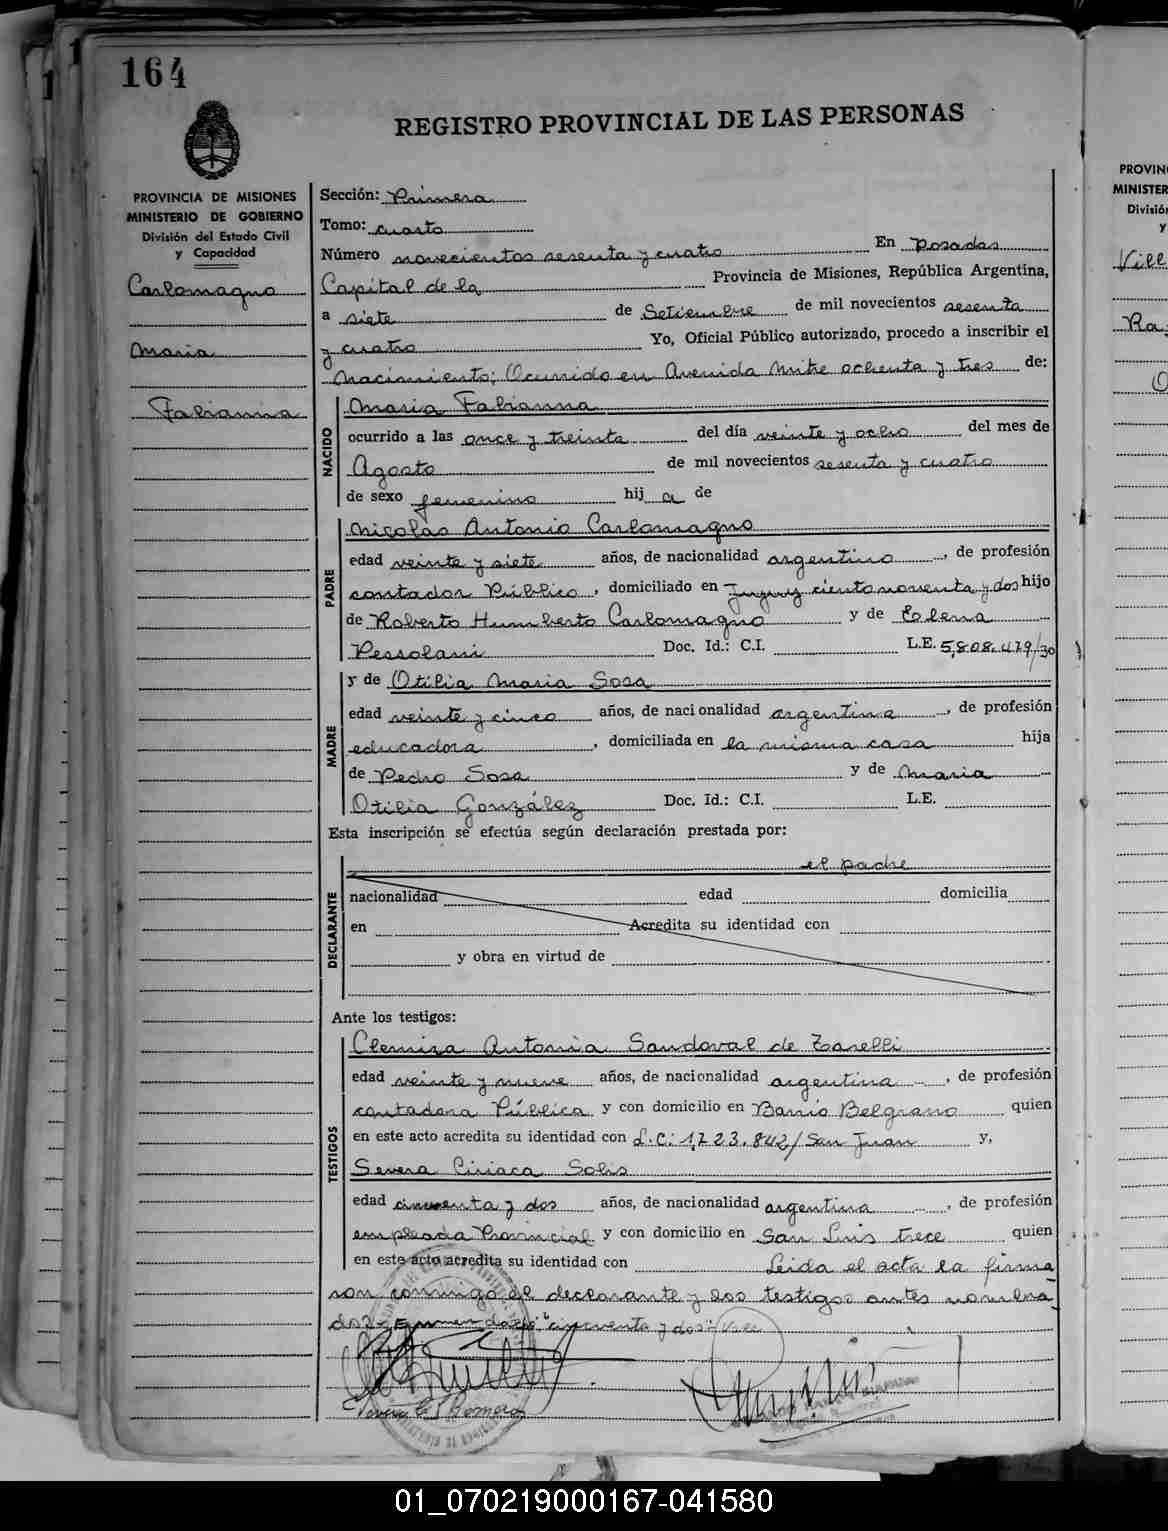 164
REGISTRO PROVINCIAL DE LAS PERSONAS
PROVINCIA DE MISIONES
MINISTERIO DE GOBIERNO
División del Estado Civil
y Capacidad
Carlomagno
Maria
Fabianna
Sección: Primera
Tomo: cuarto
Número novecientos sesenta y cuatro En Posadas
Capital de la Provincia de Misiones, República Argentina,
a siete de Setiembre de mil novecientos sesenta
y cuatro Yo, Oficial Público autorizado, procedo a inscribir el
Nacimiento; Ocurrido en Avenida Mitre ochenta y tres de:
NACIDO
Maria Fabianna
ocurrido a las once y treinta del día veinte y ocho del mes de
Agosto de mil novecientos sesenta y cuatro
de sexo femenino hij a de
PADRE
Nicolas Antonio Carlomagno
edad veinte y siete años, de nacionalidad argentino, de profesión
contador Público, domiciliado en Jujuy ciento noventa y dos hijo
de Roberto Humberto Carlomagno y de Elena
Pessolani Doc. Id.: C.I. L.E. 5,808.479/30
MADRE
y de Otilia Maria Sosa
edad veinte y cinco años, de nacionalidad argentina, de profesión
educadora, domiciliada en la misma casa hija
de Pedro Sosa y de Maria
Otilia González Doc. Id.: C.I. L.E.
Esta inscripción se efectúa según declaración prestada por:
DECLARANTE
el padre
nacionalidad edad domicilia
en Acredita su identidad con
y obra en virtud de
Ante los testigos:
TESTIGOS
Clemira Antonia Sandoval de
edad veinte y nueve años, de nacionalidad argentina, de profesión
contadora Pública y con domicilio en Barrio Belgrano quien
en este acto acredita su identidad con L.C: 1,723.842/San Juan y,
Severa Ciriaca Solis
edad cincuenta y dos años, de nacionalidad argentina, de profesión
empleada Provincial y con domicilio en San Luis trece quien
en este acto acredita su identidad con Leida el acta la firma
ron conmigo el declarante y los testigos antes nombra
dos. "cincuenta y dos" Vale
PROVIN
MINISTER
Divisió
y
Vill
Ra
01_070219000167-041580